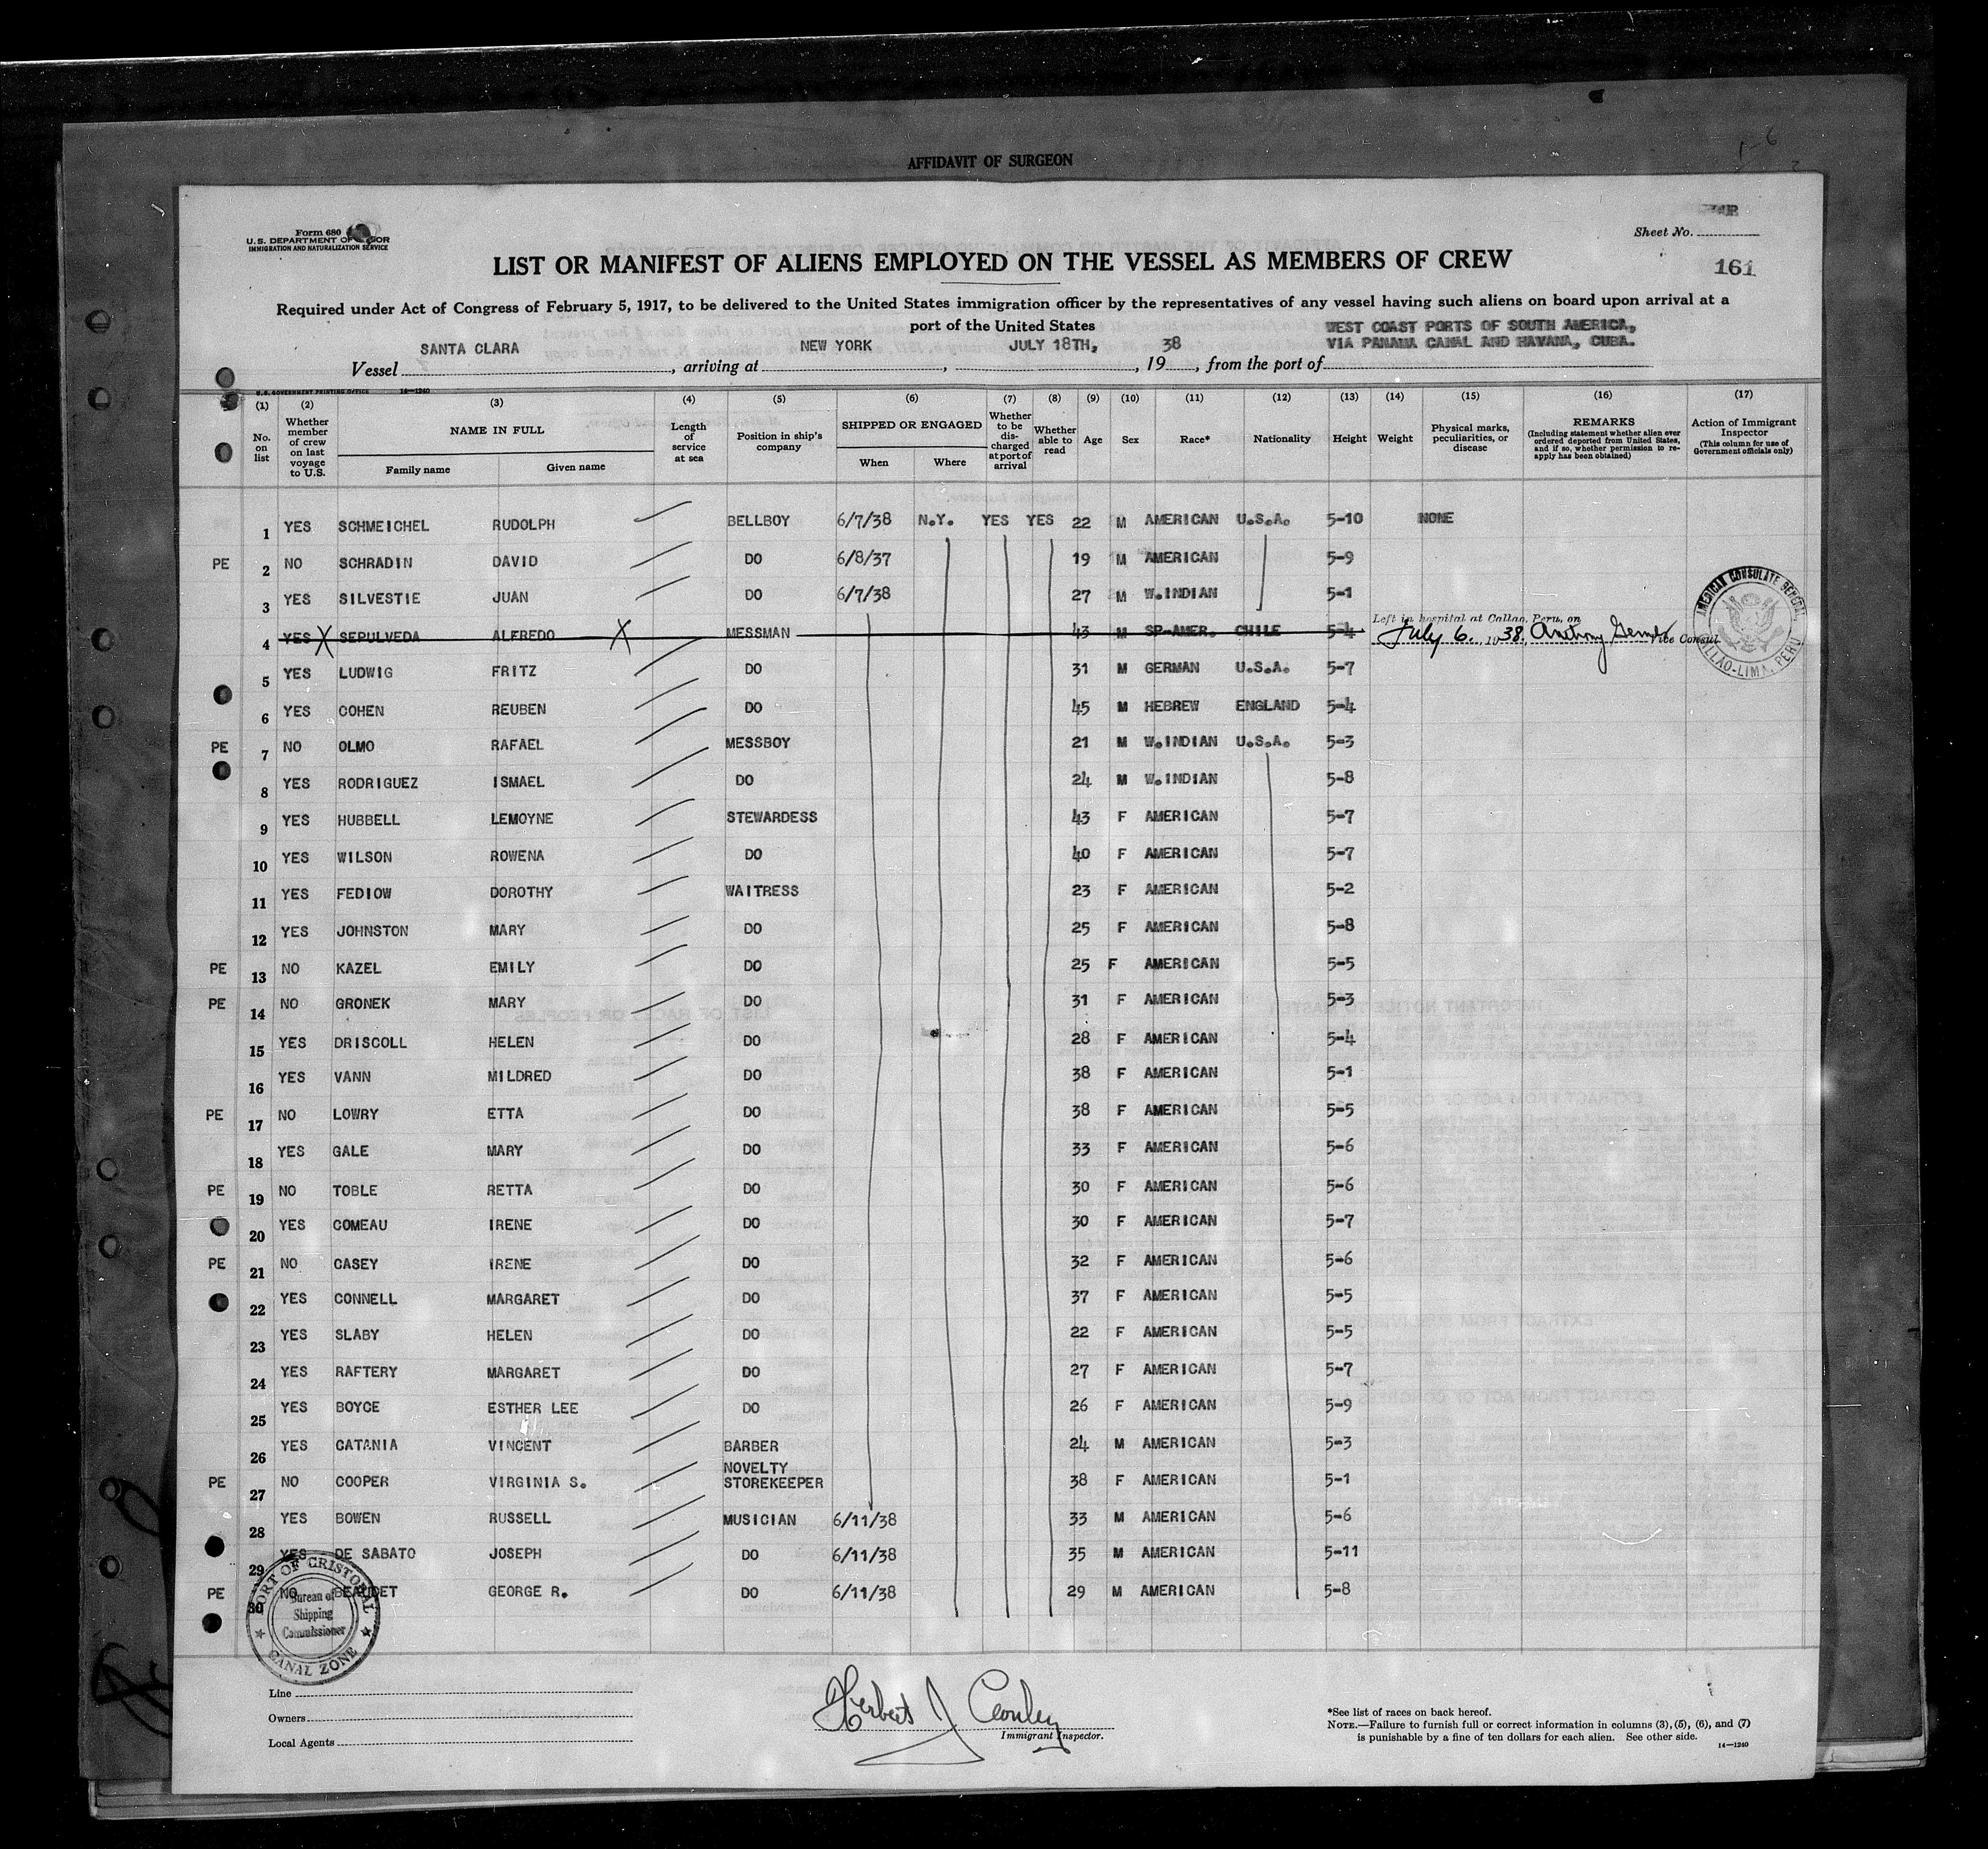 AFFIDAVIT OF SURGEON
Form 680
U.S. DEPARTMENT OF LABOR
IMMIGRATION AND NATURALIZATION SERVICE
Sheet No.
161
LIST OR MANIFEST OF ALIENS EMPLOYED ON THE VESSEL AS MEMBERS OF CREW
Required under Act of Congress of February 5, 1917, to be delivered to the United States immigration officer by the representatives of any vessel having such aliens on board upon arrival at a
port of the United States
WEST COAST PORTS OF SOUTH AMERICA,
Vessel SANTA CLARA, arriving at NEW YORK, JULY 18TH, 1938, from the port of VIA PANAMA CANAL AND HAVANA, CUBA.
U.S. GOVERNMENT PRINTING OFFICE 14—1240
(1) No. on list
(2) Whether member of crew on last voyage to U.S.
(3) NAME IN FULL
Family name Given name
(4) Length of service at sea
(5) Position in ship's company
(6) SHIPPED OR ENGAGED
When Where
(7) Whether to be discharged at port of arrival
(8) Whether able to read
(9) Age
(10) Sex
(11) Race*
(12) Nationality
(13) Height
(14) Weight
(15) Physical marks, peculiarities, or disease
(16) REMARKS (Including statement whether alien ever ordered deported from United States, and if so, whether permission to reapply has been obtained)
(17) Action of Immigrant Inspector (This column for use of Government officials only)
1 YES SCHMEICHEL RUDOLPH BELLBOY 6/7/38 N.Y. YES YES 22 M AMERICAN U.S.A. 5-10 NONE
PE 2 NO SCHRADIN DAVID DO 6/8/37 19 M AMERICAN 5-9
3 YES SILVESTIE JUAN DO 6/7/38 27 M W.INDIAN 5-1
4 YES X SEPULVEDA ALFREDO X MESSMAN 43 M SP-AMER. CHILE 5-4 Left in hospital at Callao, Peru, on July 6, 1938, Anthony Vice Consul
AMERICAN CONSULATE GENERAL CALLAO-LIMA, PERU
5 YES LUDWIG FRITZ DO 31 M GERMAN U.S.A. 5-7
6 YES COHEN REUBEN DO 45 M HEBREW ENGLAND 5-4
PE 7 NO OLMO RAFAEL MESSBOY 21 M W.INDIAN U.S.A. 5-3
8 YES RODRIGUEZ ISMAEL DO 24 M W.INDIAN 5-8
9 YES HUBBELL LEMOYNE STEWARDESS 43 F AMERICAN 5-7
10 YES WILSON ROWENA DO 40 F AMERICAN 5-7
11 YES FEDIOW DOROTHY WAITRESS 23 F AMERICAN 5-2
12 YES JOHNSTON MARY DO 25 F AMERICAN 5-8
PE 13 NO KAZEL EMILY DO 25 F AMERICAN 5-5
PE 14 NO GRONEK MARY DO 31 F AMERICAN 5-3
15 YES DRISCOLL HELEN DO 28 F AMERICAN 5-4
16 YES VANN MILDRED DO 38 F AMERICAN 5-1
PE 17 NO LOWRY ETTA DO 38 F AMERICAN 5-5
18 YES GALE MARY DO 33 F AMERICAN 5-6
PE 19 NO TOBLE RETTA DO 30 F AMERICAN 5-6
20 YES COMEAU IRENE DO 30 F AMERICAN 5-7
PE 21 NO CASEY IRENE DO 32 F AMERICAN 5-6
22 YES CONNELL MARGARET DO 37 F AMERICAN 5-5
23 YES SLABY HELEN DO 22 F AMERICAN 5-5
24 YES RAFTERY MARGARET DO 27 F AMERICAN 5-7
25 YES BOYCE ESTHER LEE DO 26 F AMERICAN 5-9
26 YES CATANIA VINCENT BARBER 24 M AMERICAN 5-3
PE 27 NO COOPER VIRGINIA S. NOVELTY STOREKEEPER 38 F AMERICAN 5-1
28 YES BOWEN RUSSELL MUSICIAN 6/11/38 33 M AMERICAN 5-6
29 YES DE SABATO JOSEPH DO 6/11/38 35 M AMERICAN 5-11
PE 30 NO GEORGE R. DO 6/11/38 29 M AMERICAN 5-8
PORT OF CRISTOBAL
Bureau of
Shipping
Commissioner
CANAL ZONE
Line
Owners
Local Agents
Herbert J.
Immigrant Inspector.
*See list of races on back hereof.
NOTE.—Failure to furnish full or correct information in columns (3), (5), (6), and (7)
is punishable by a fine of ten dollars for each alien. See other side.
14—1240